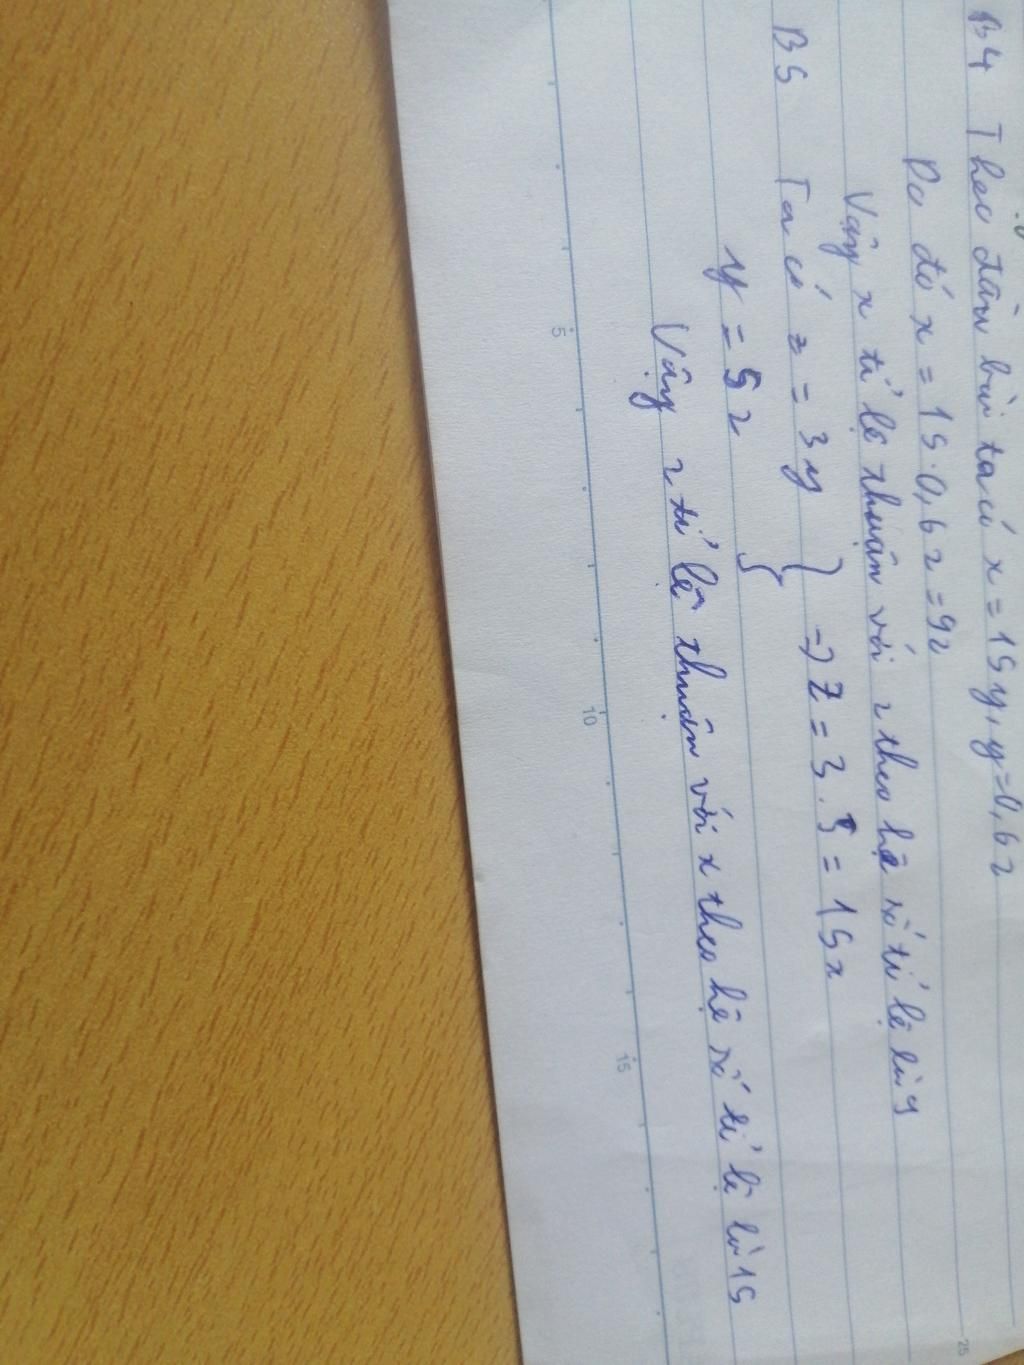 B4 Theo đầu bài ta có x = 15y, y = 0,6z
Do đó x = 15.0,6z = 9z
Vậy x tỉ lệ thuận với z theo hệ số tỉ lệ là 9
B5 Ta có z = 3y } => z = 3.5 = 15x
y = 5x
Vậy z tỉ lệ thuận với x theo hệ số tỉ lệ là 15
5
10
15
25